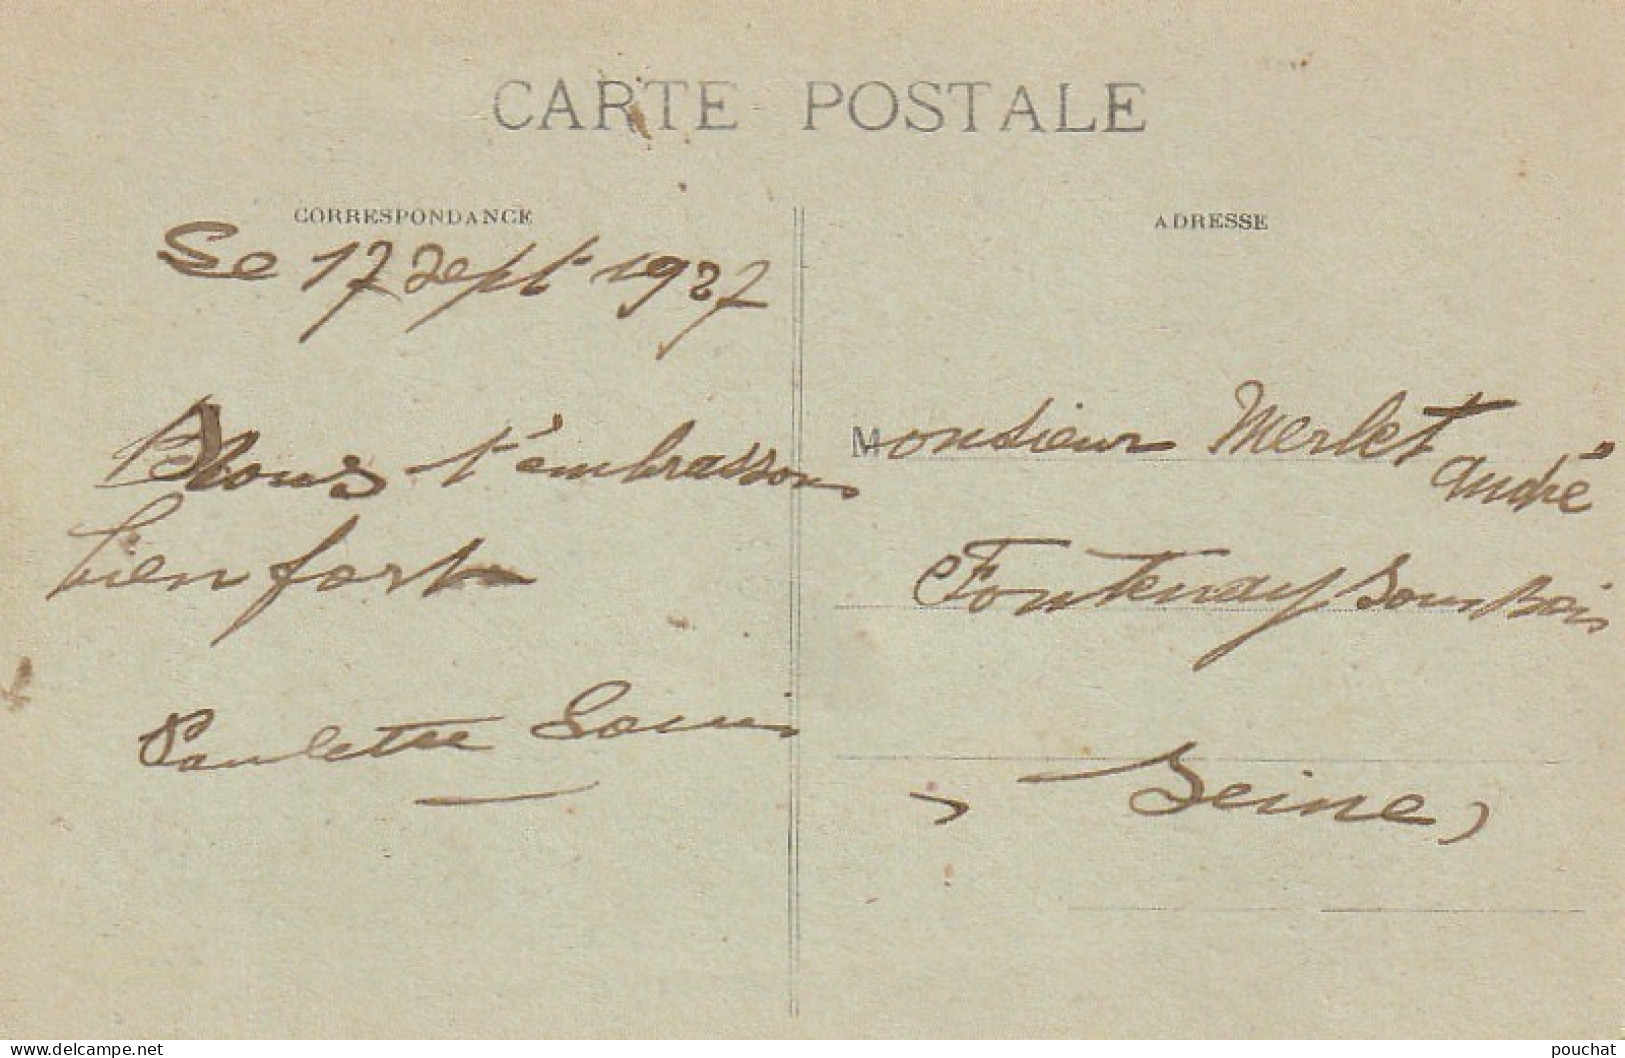 CARTE POSTALE
CORRESPONDANCE
Le 17 Sept 1927
Nous t'embrassons
bien fort
Paulette Louis
ADRESSE
Monsieur Merlet
André
Fontenay sous Bois
(Seine)
delcampe.net
pouchat